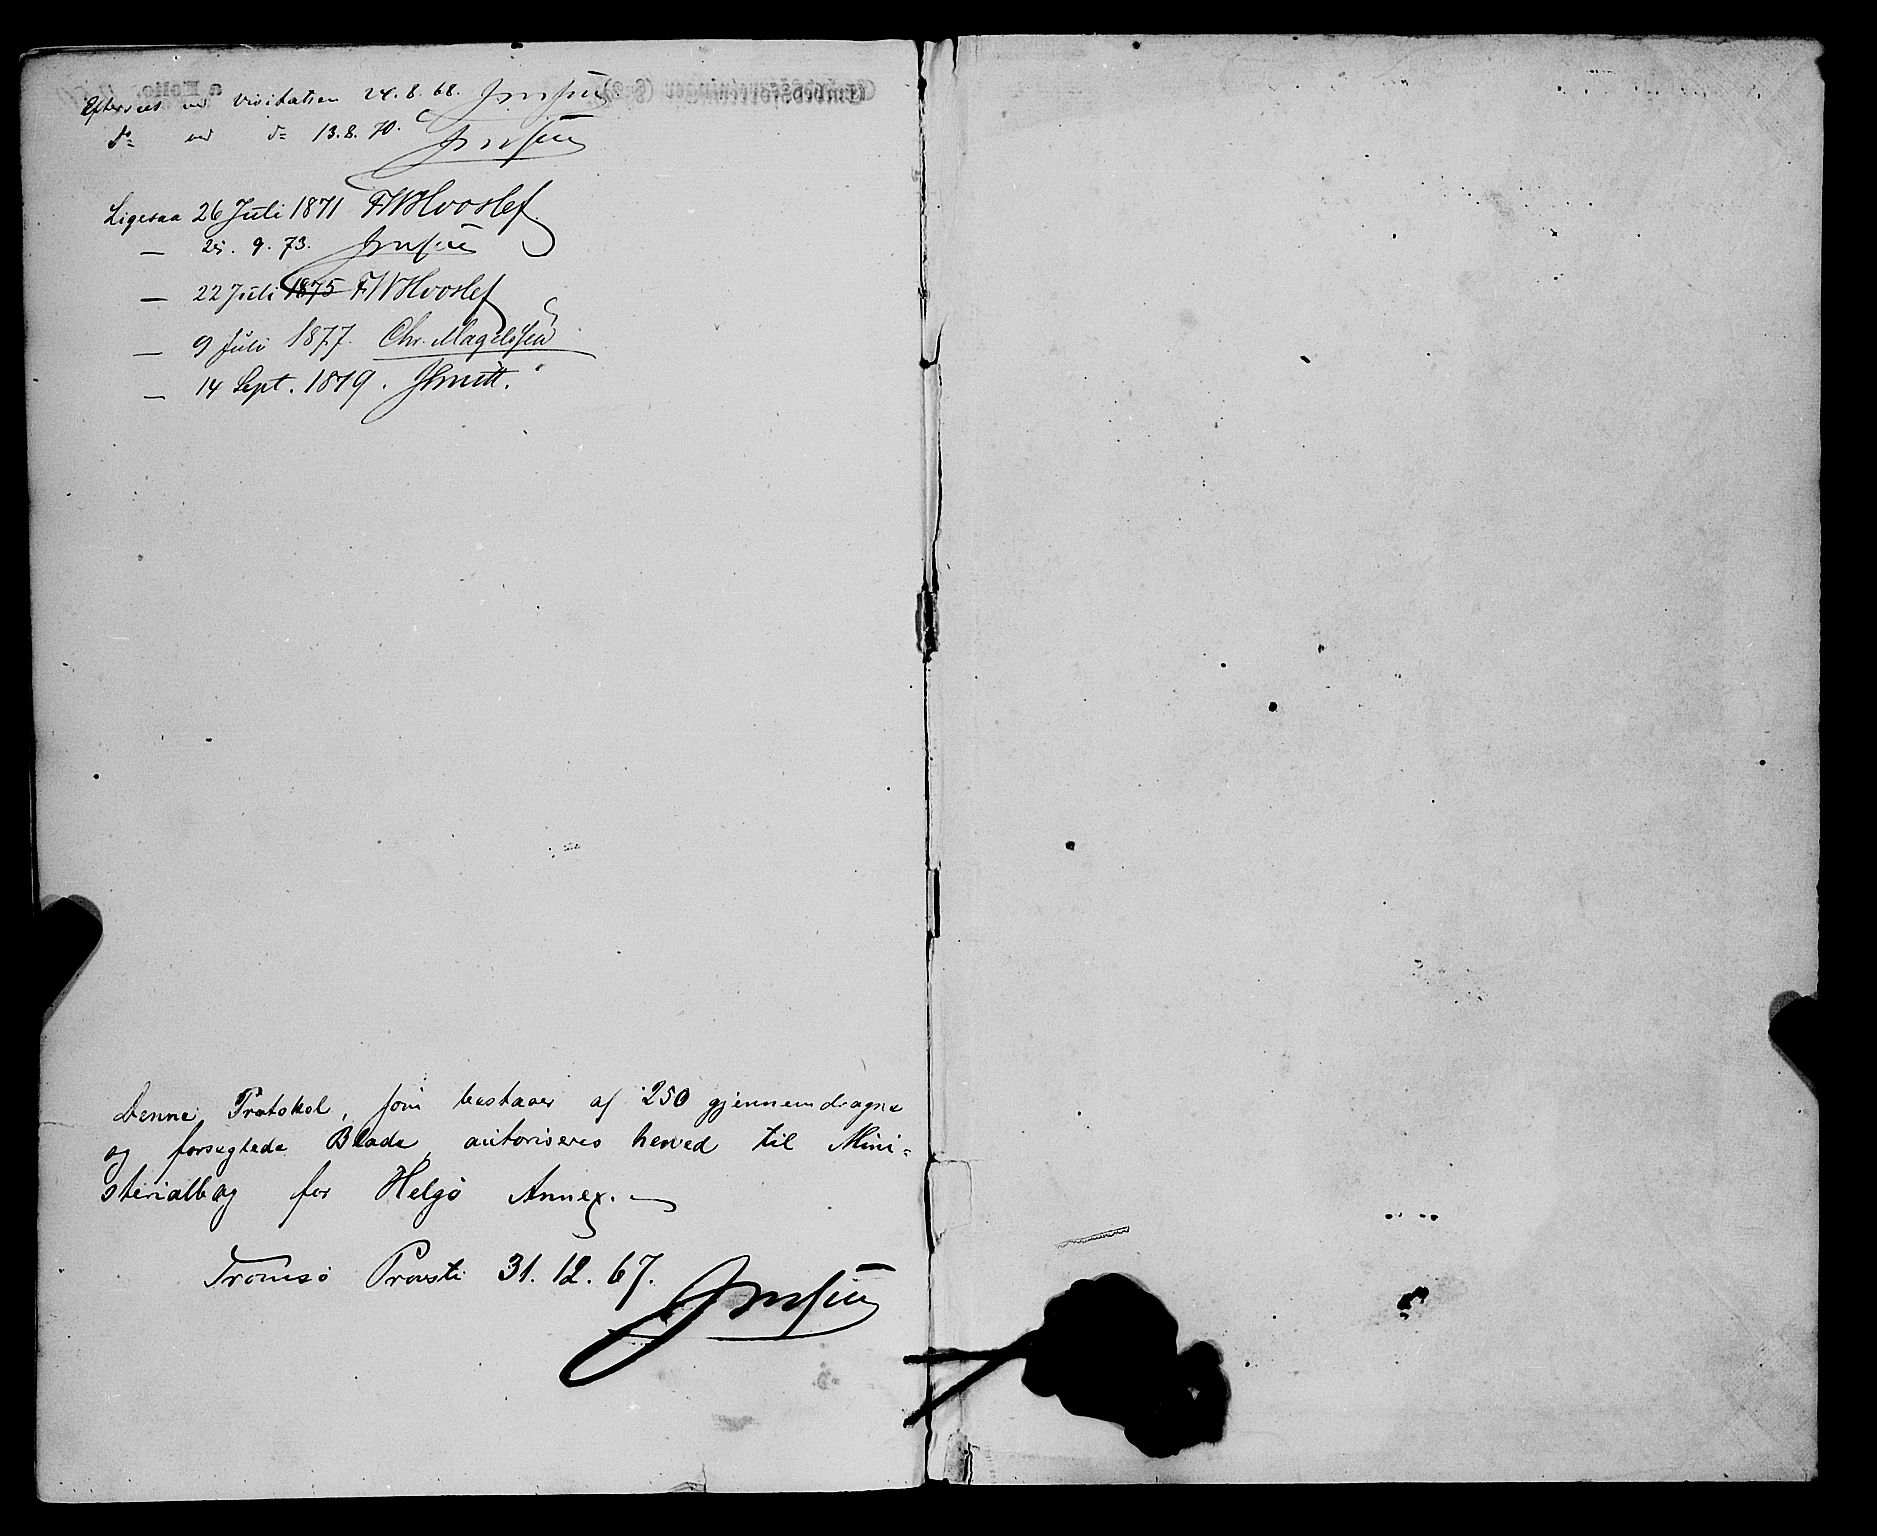 Efterseet ved Visitatsen 24.8.68.
do ved do 13.8.70.
Ligesaa 26 Juli 1871 FWHvoslef
— 25. 9. 73.
— 22 Juli 1875 FWHvoslef
— 9 Juli 1877. Chr. Magelssen
— 14 Sept. 1879. JSmitt.
Denne Protokol, som bestaaer af 250 gjennemdragne
og forseglede Blade, autoriseres herved til Mini=
sterialbog for Helgö Annex.
Tromsö Provsti 31.12.67.